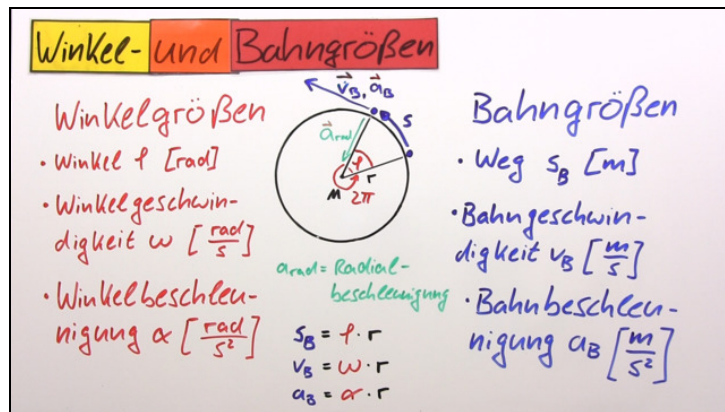 Winkel- und Bahngrößen
Winkelgrößen
• Winkel φ [rad]
• Winkelgeschwin-
digkeit ω [rad/s]
• Winkelbeschleu-
nigung α [rad/s²]
v⃗_B, a⃗_B
s
a⃗_rad
φ
r
M
2π
a_rad = Radial-
beschleunigung
s_B = φ · r
v_B = ω · r
a_B = α · r
Bahngrößen
• Weg s_B [m]
• Bahngeschwin-
digkeit v_B [m/s]
• Bahnbeschleu-
nigung a_B [m/s²]